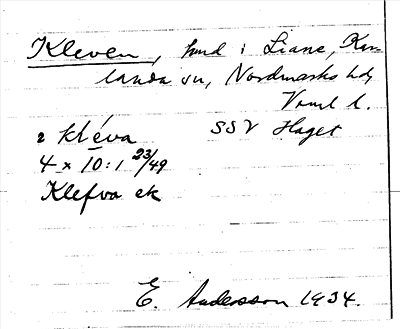 Kleven, hmd i Liane, Kar-
landa sn, Nordmarks hd,
Vrml l.
SSV Haget
2 kléva
4 x 10:1 23/49
Klefva ek
E. Andersson 1934.